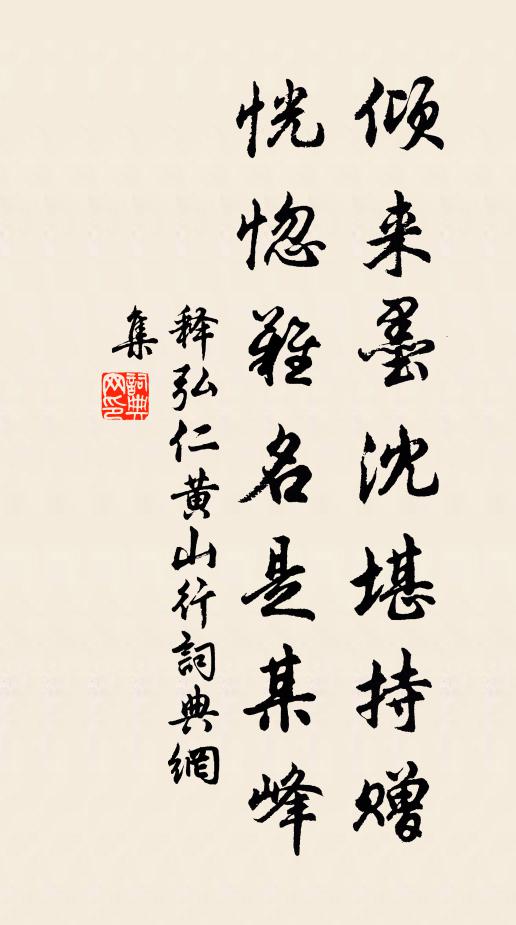 倾来墨沈堪持赠
恍惚難名是某峰
释弘仁黄山行詞典網
集
詞典
网印